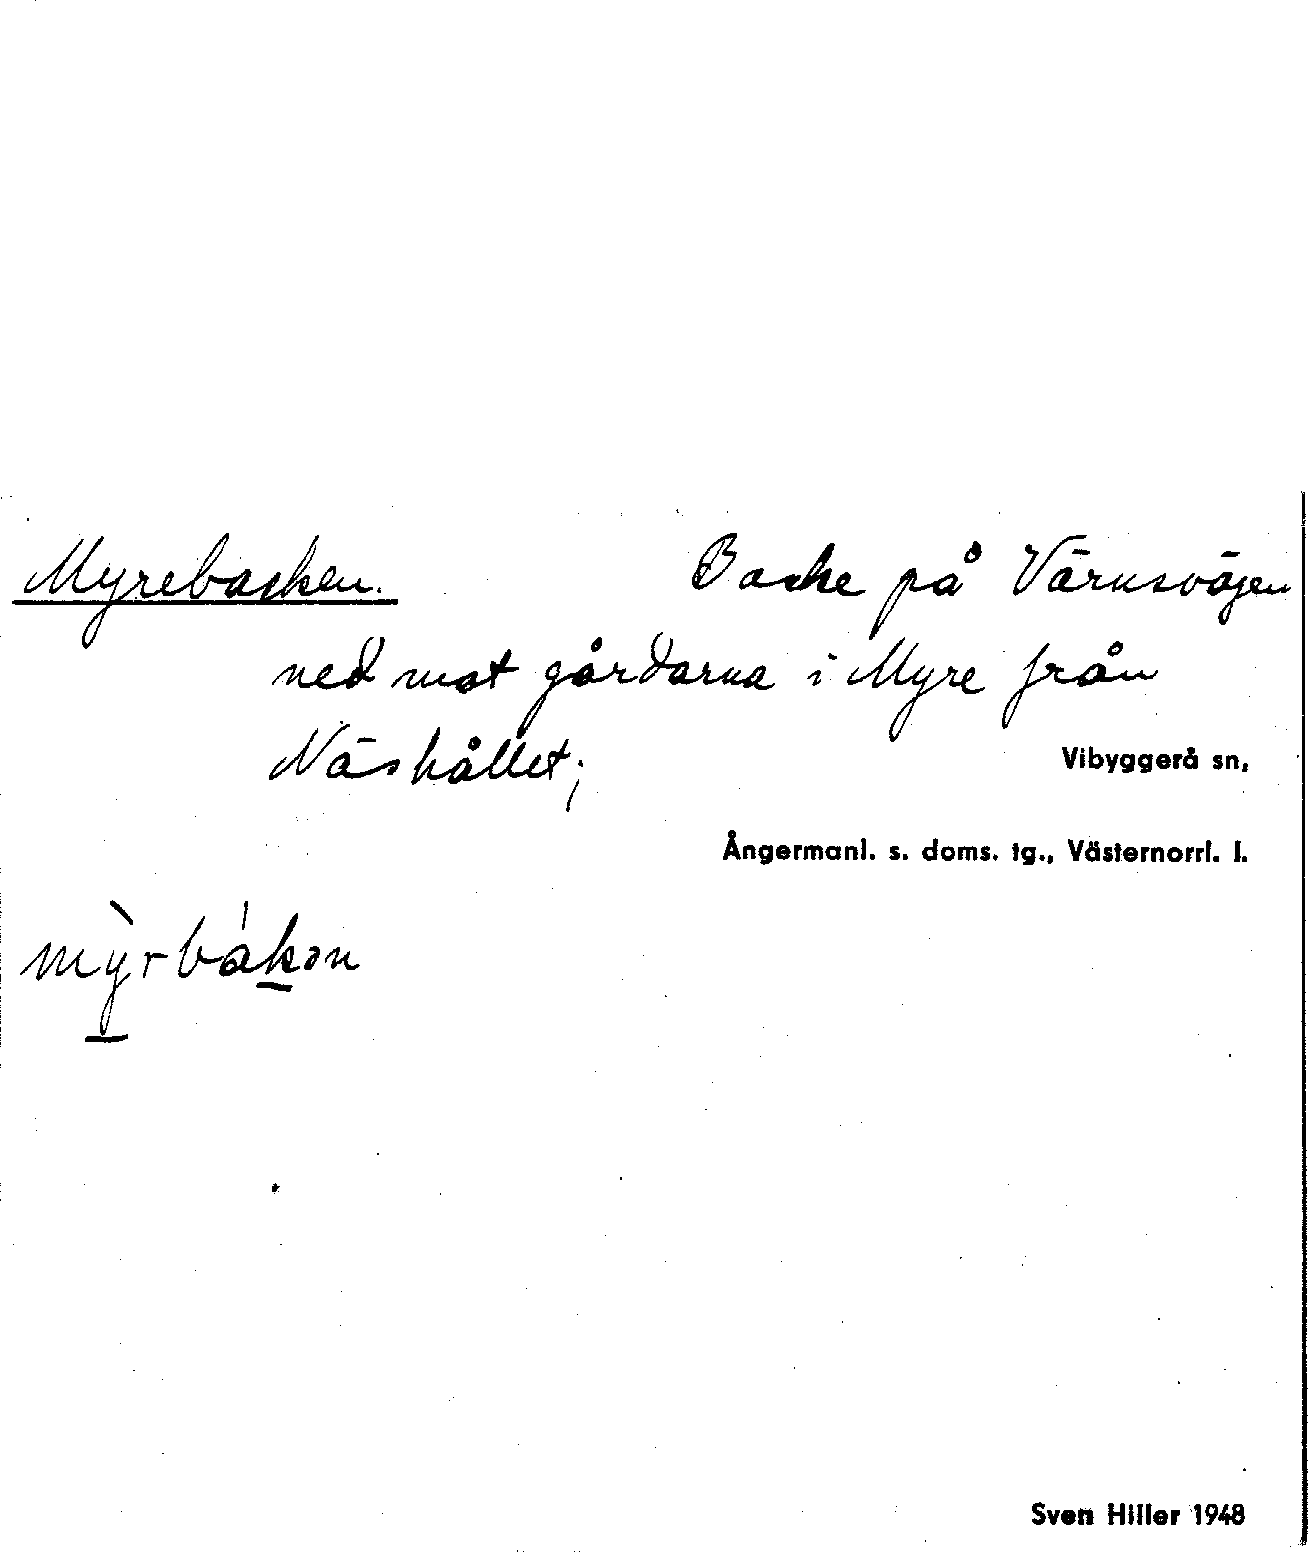 Myrebacken. Backe på Värnsvägen
ned mot gårdarna i Myre från
Näshållet;
Vibyggerå sn,
Ångermanl. s. doms. tg., Västernorrl. l.
mỳrbákən
Sven Hiller 1948